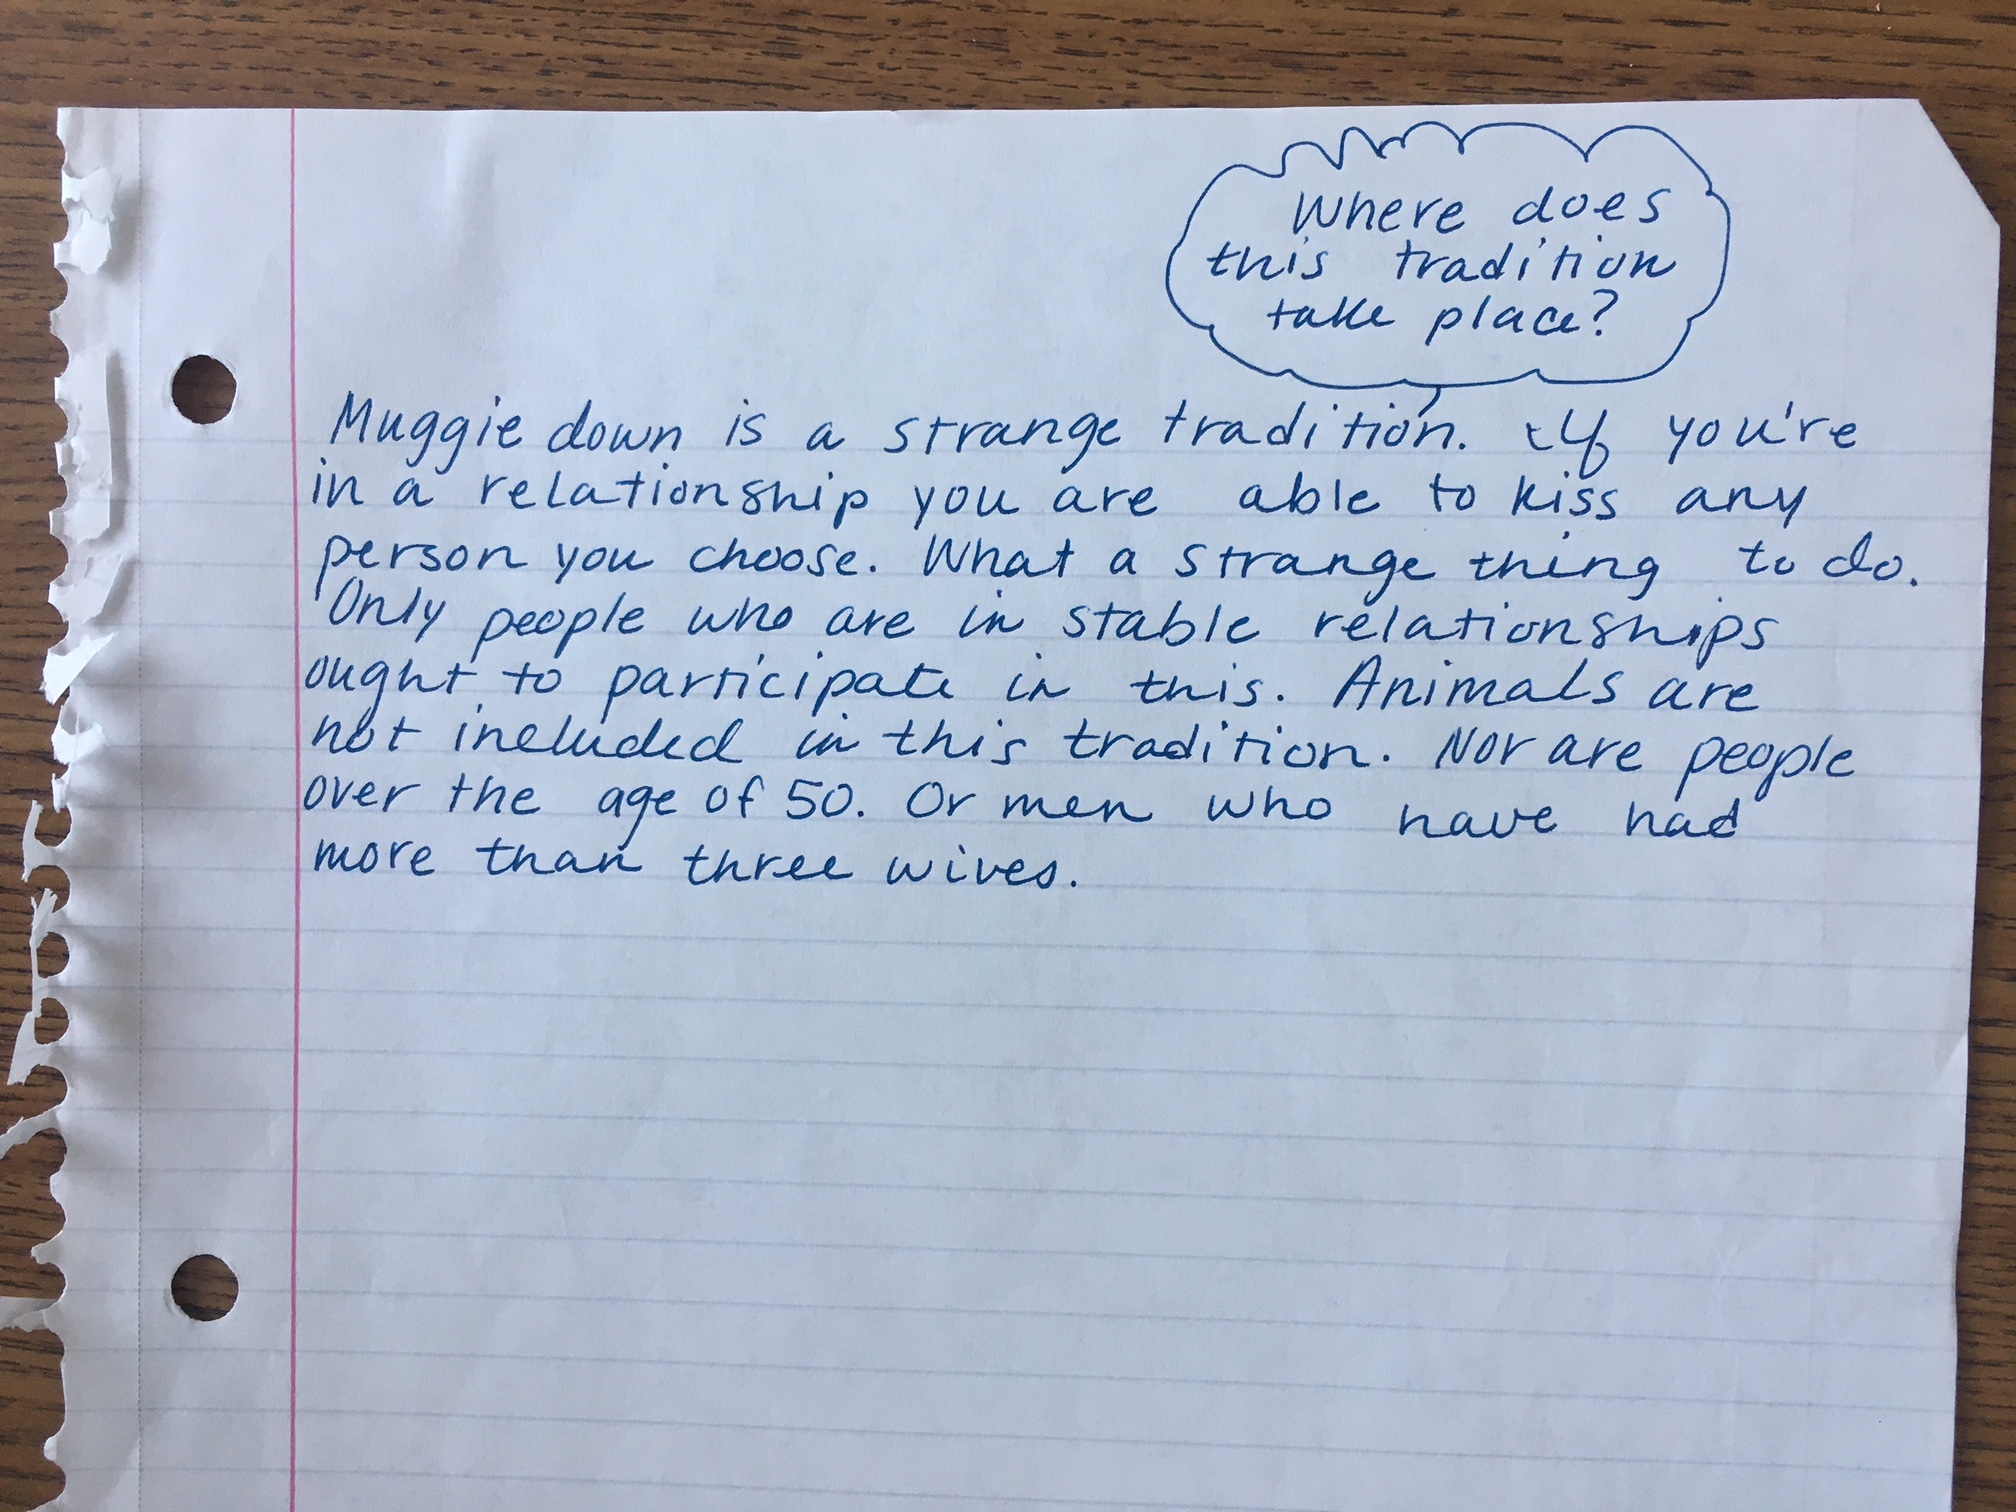 Where does
this tradition
take place?
Muggie down is a strange tradition. If you're
in a relationship you are able to kiss any
person you choose. What a strange thing to do.
Only people who are in stable relationships
ought to participate in this. Animals are
not included in this tradition. Nor are people
over the age of 50. Or men who have had
more than three wives.